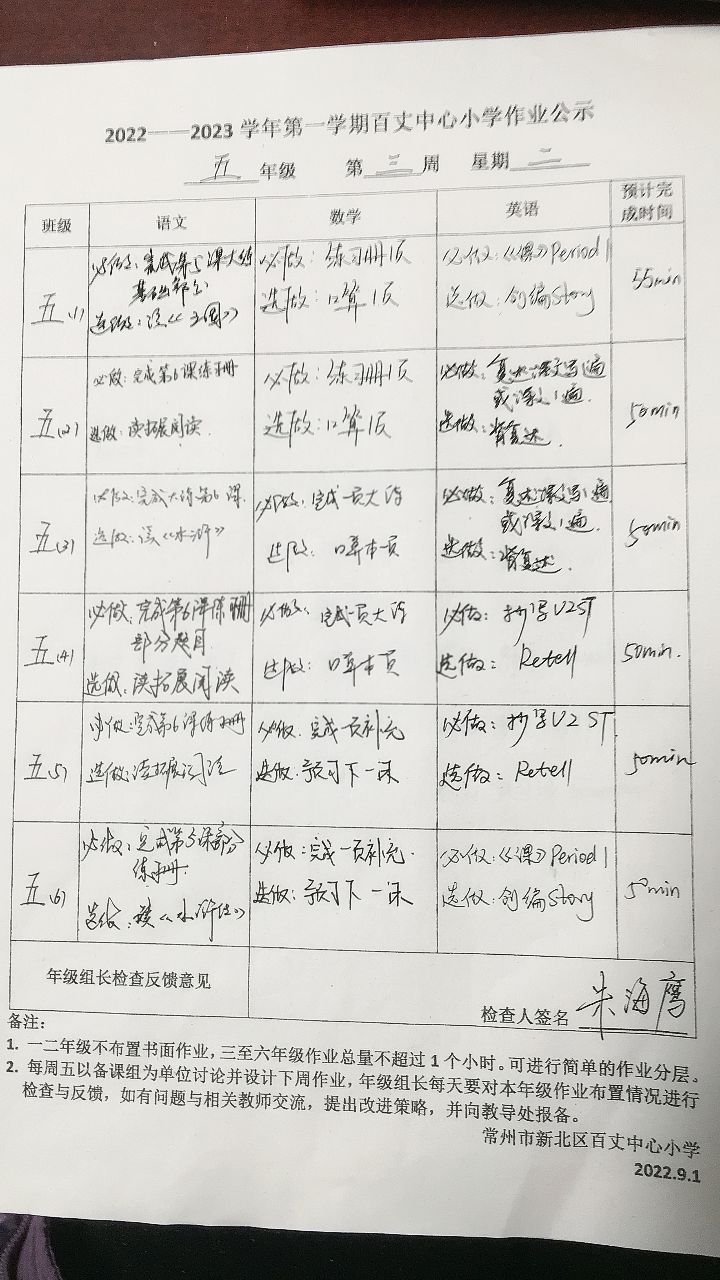 2022——2023 学年第一学期百丈中心小学作业公示
五 年级 第 三 周 星期 二
班级 语文 数学 英语 预计完成时间
五(1)
必做：完成第5课大练
基础部分
选做：读《三国》
必做：练习册1页
选做：口算1页
必做：《课》Period 1
选做：创编Story
55min
五(2)
必做：完成第6课练习册
选做：读拓展阅读
必做：练习册1页
选做：口算1页
必做：
或课文1遍
选做：背复述
50min
五(3)
必做：完成大练第6课
选做：读《水浒》
必做：完成一页大练
选做：口算本一页
必做：
或课文1遍
选做：背复述
50min
五(4)
必做：完成第6课练习册
部分题目
选做：读拓展阅读
必做：完成一页大练
选做：口算本一页
必做：抄写U2 ST
选做：Retell
50min.
五(5)
必做：完成第6课练习册
选做：读拓展阅读
必做：完成一页补充
选做：预习下一课
必做：抄写U2 ST
选做：Retell
50min
五(6)
必做：完成第5课部分
练习册
选做：读《水浒传》
必做：完成一页补充
选做：预习下一课
必做：《课》Period 1
选做：创编Story
50min
年级组长检查反馈意见
检查人签名 朱海鹰
备注：
1. 一二年级不布置书面作业，三至六年级作业总量不超过 1 个小时。可进行简单的作业分层。
2. 每周五以备课组为单位讨论并设计下周作业，年级组长每天要对本年级作业布置情况进行
检查与反馈，如有问题与相关教师交流，提出改进策略，并向教导处报备。
常州市新北区百丈中心小学
2022.9.1